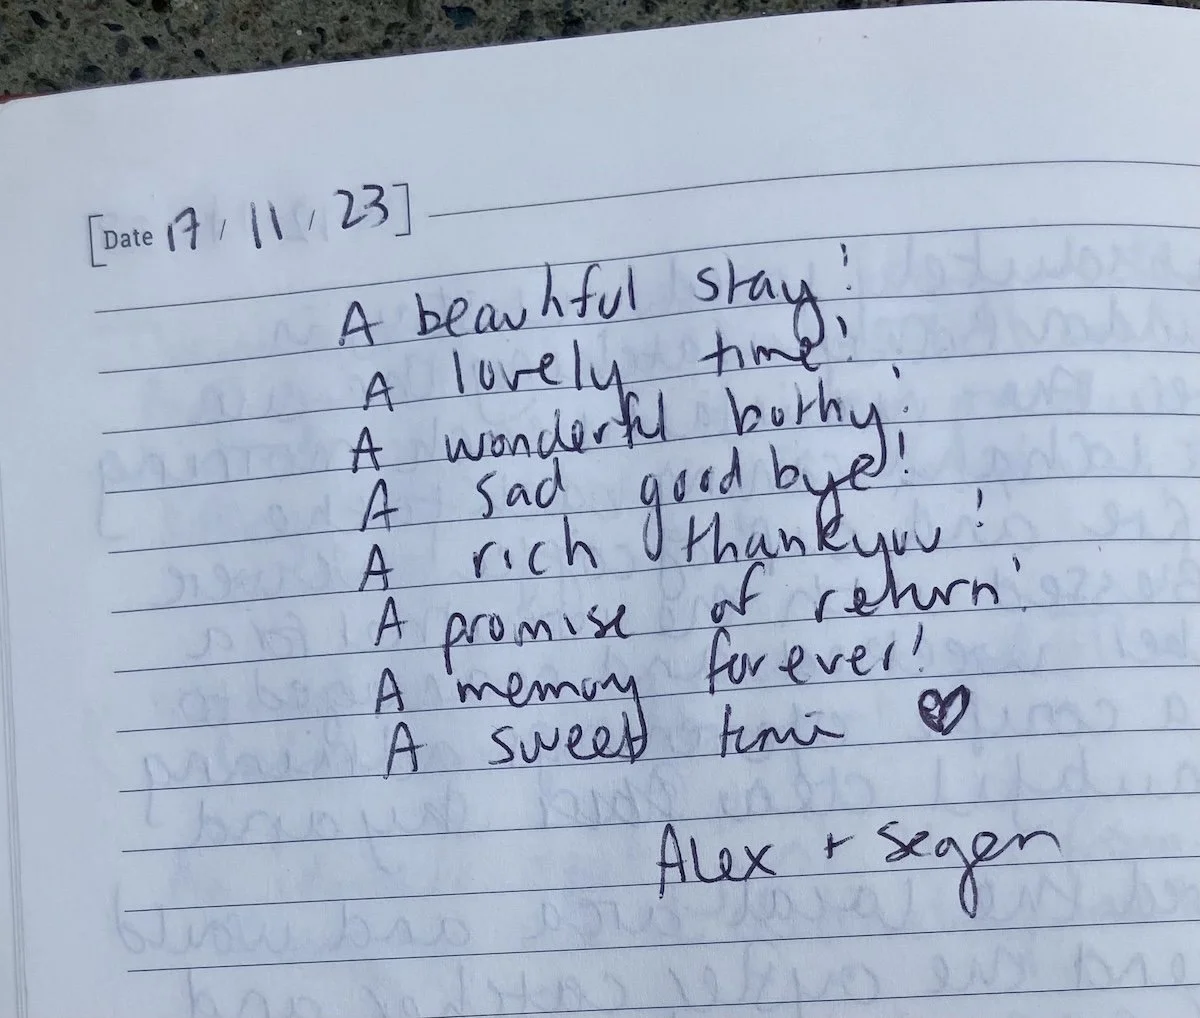 [Date 17 / 11 / 23]
A beautiful stay!
A lovely time!
A wonderful bothy!
A sad goodbye!
A rich thankyou!
A promise of return!
A memory forever!
A sweet time ♥
Alex + Segen